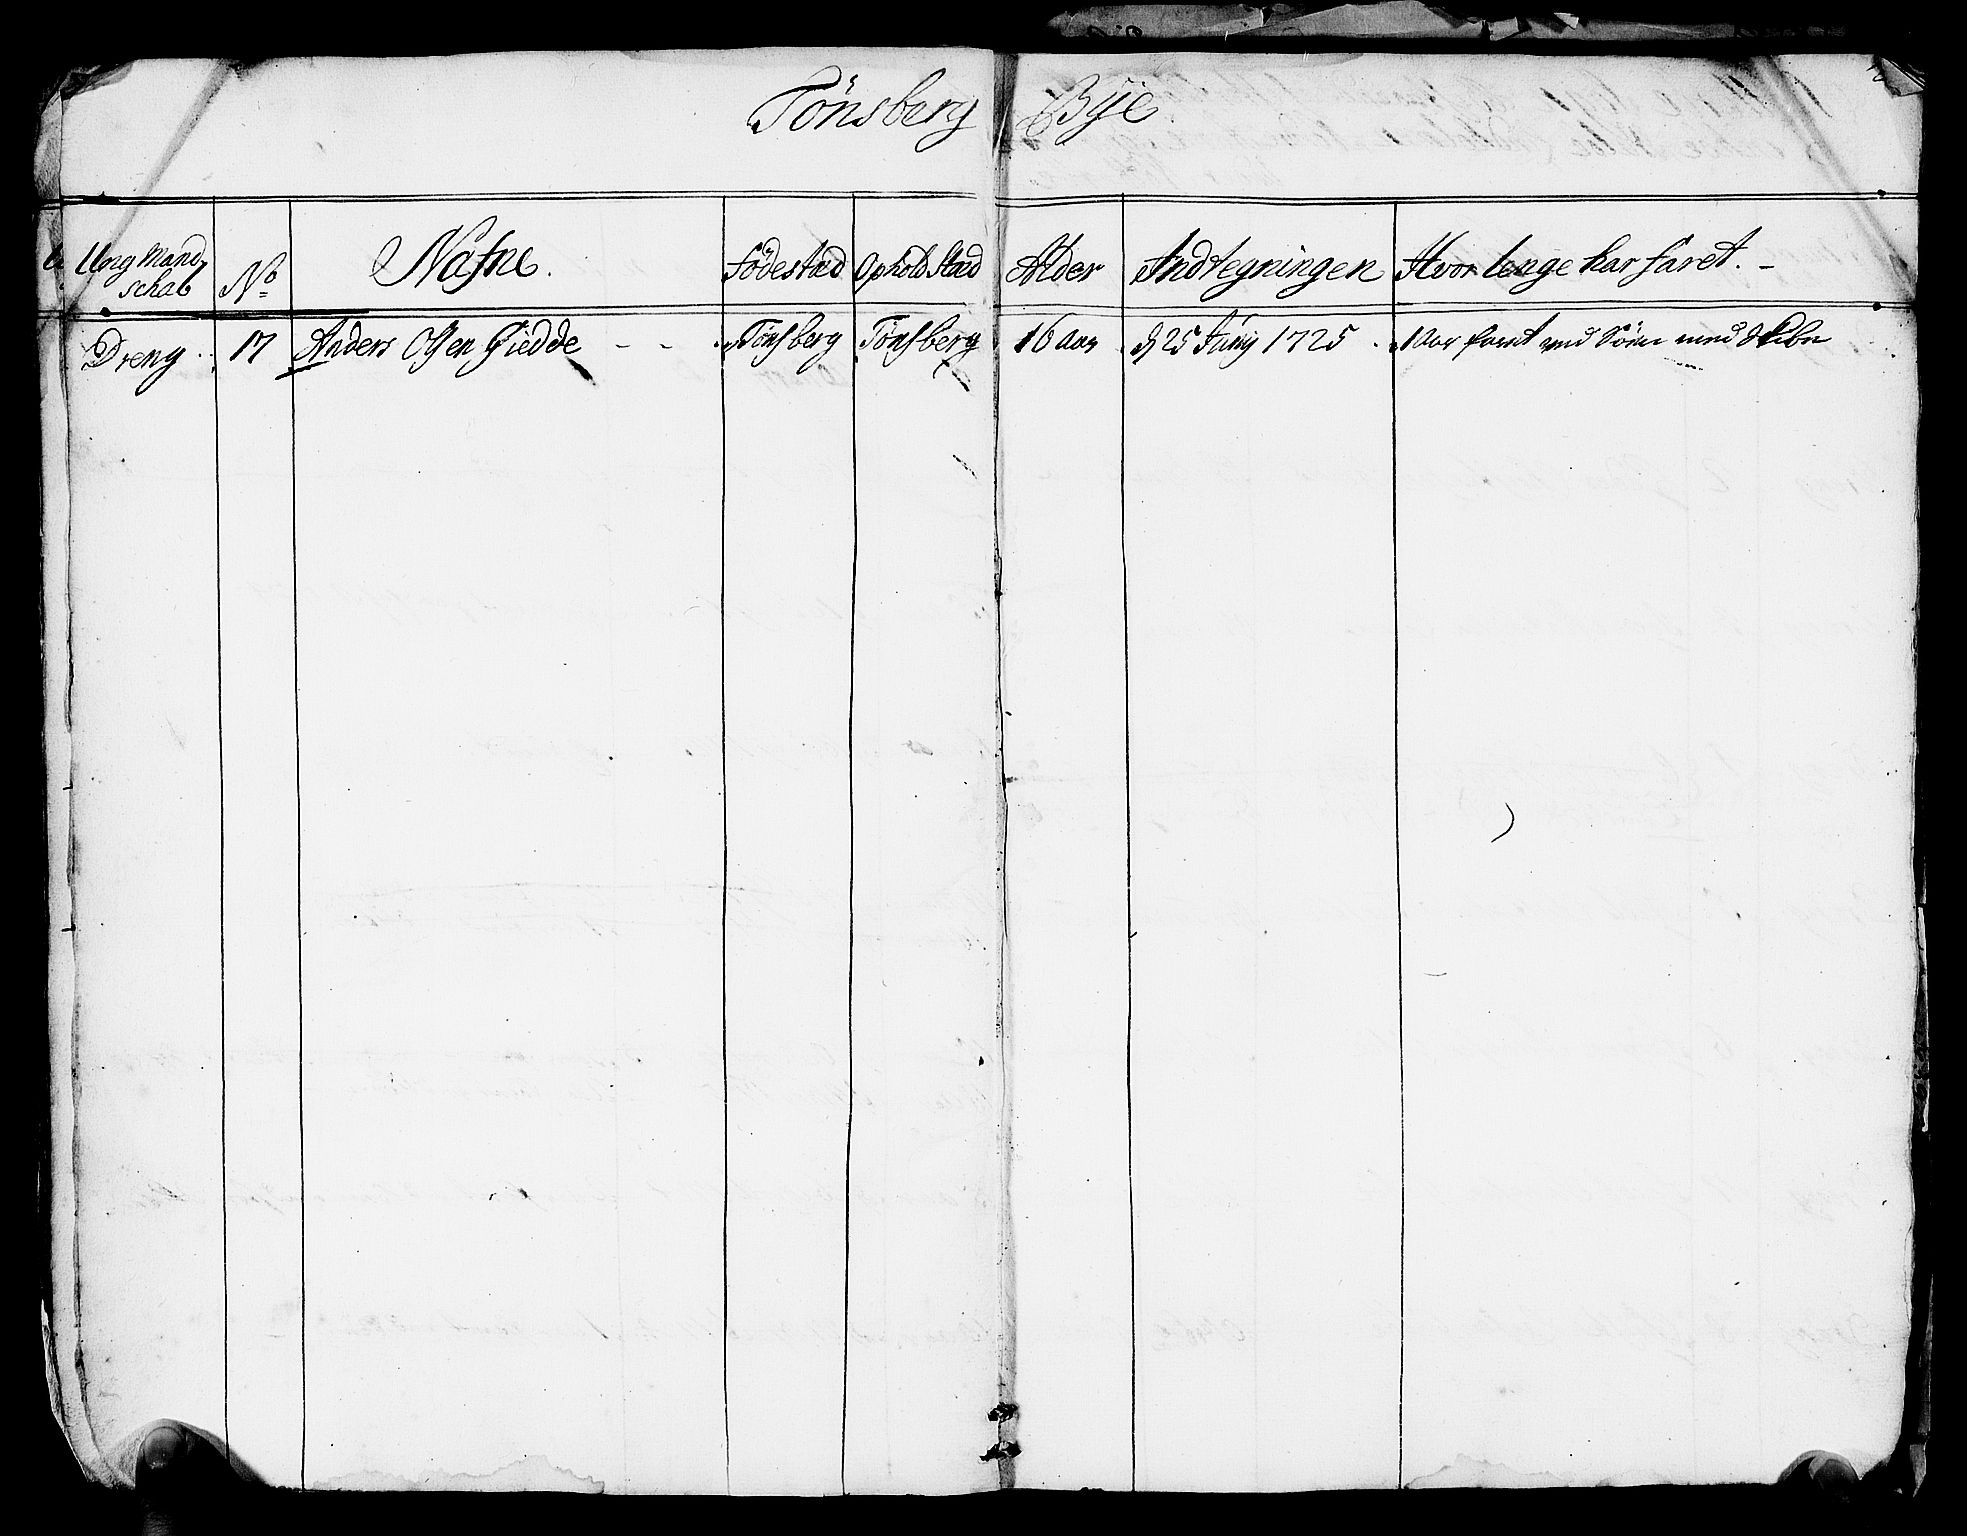 Tönsberg Bÿe
Ung Mand schab No Nafne. Födestad Ophold Stad Alder Indtegningen Hvor lenge har faret. -
Dreng. 17 Anders Olsen Giedde - - Tönsberg Tönsberg 16 Aar d 25 Junij 1725. 1 Aar faret med Skibe